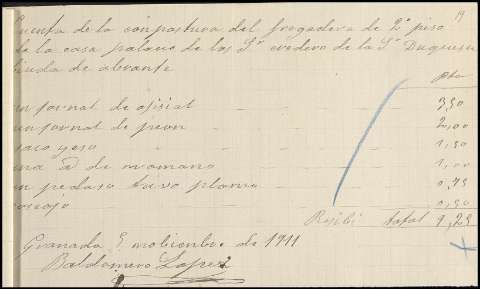 19
Cuenta de la conpostura del fregadero de 2º piso
de la casa palacio de los Sr erederos de la Sª Duquesa
biuda de abrante
pta
un jornal de ofisial 3,50
un jornal de peon 2,00
saco yeso 1,50
una @ de momano 1,00
un pedaso tuvo plomo 0,75
0,50
Resibi total 9,25
Granada 5 nobiembre de 1911
Baldomero Lopez